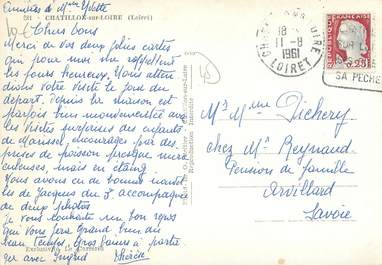 Amitiés de Mme Yvette
281 CHATILLON-sur-LOIRE (Loiret)
Chers tous
Merci de vos deux plus cartes
qui pour moi me rappellent
les jours heureux. Nous atten
dions votre visite le jour du
départ. Depuis la maison est
parfois bien mouvementée avec
les visites surprises des enfants
de Marcel, encouragés par des
prises de poisson presque mira
culeuses, mais en étang.
Nous avons eu de bonnes nouvel
les de Jacques du 3e accompagnées
de deux photos
Je vous souhaite un bon repos
qui vous fera grand bien, du
beau temps, Gros baisers à parta
ger avec Ingrid
Exclusivité
Reproduction Interdite
CHATILLON-SUR-LOIRE
18 H
11-8
1961
LOIRET
REPUBLIQUE FRANÇAISE
0,25
SA PECHE
Mr Mme Dichery
chez Mr Reynaud
Pension de famille
Arvillard
Savoie